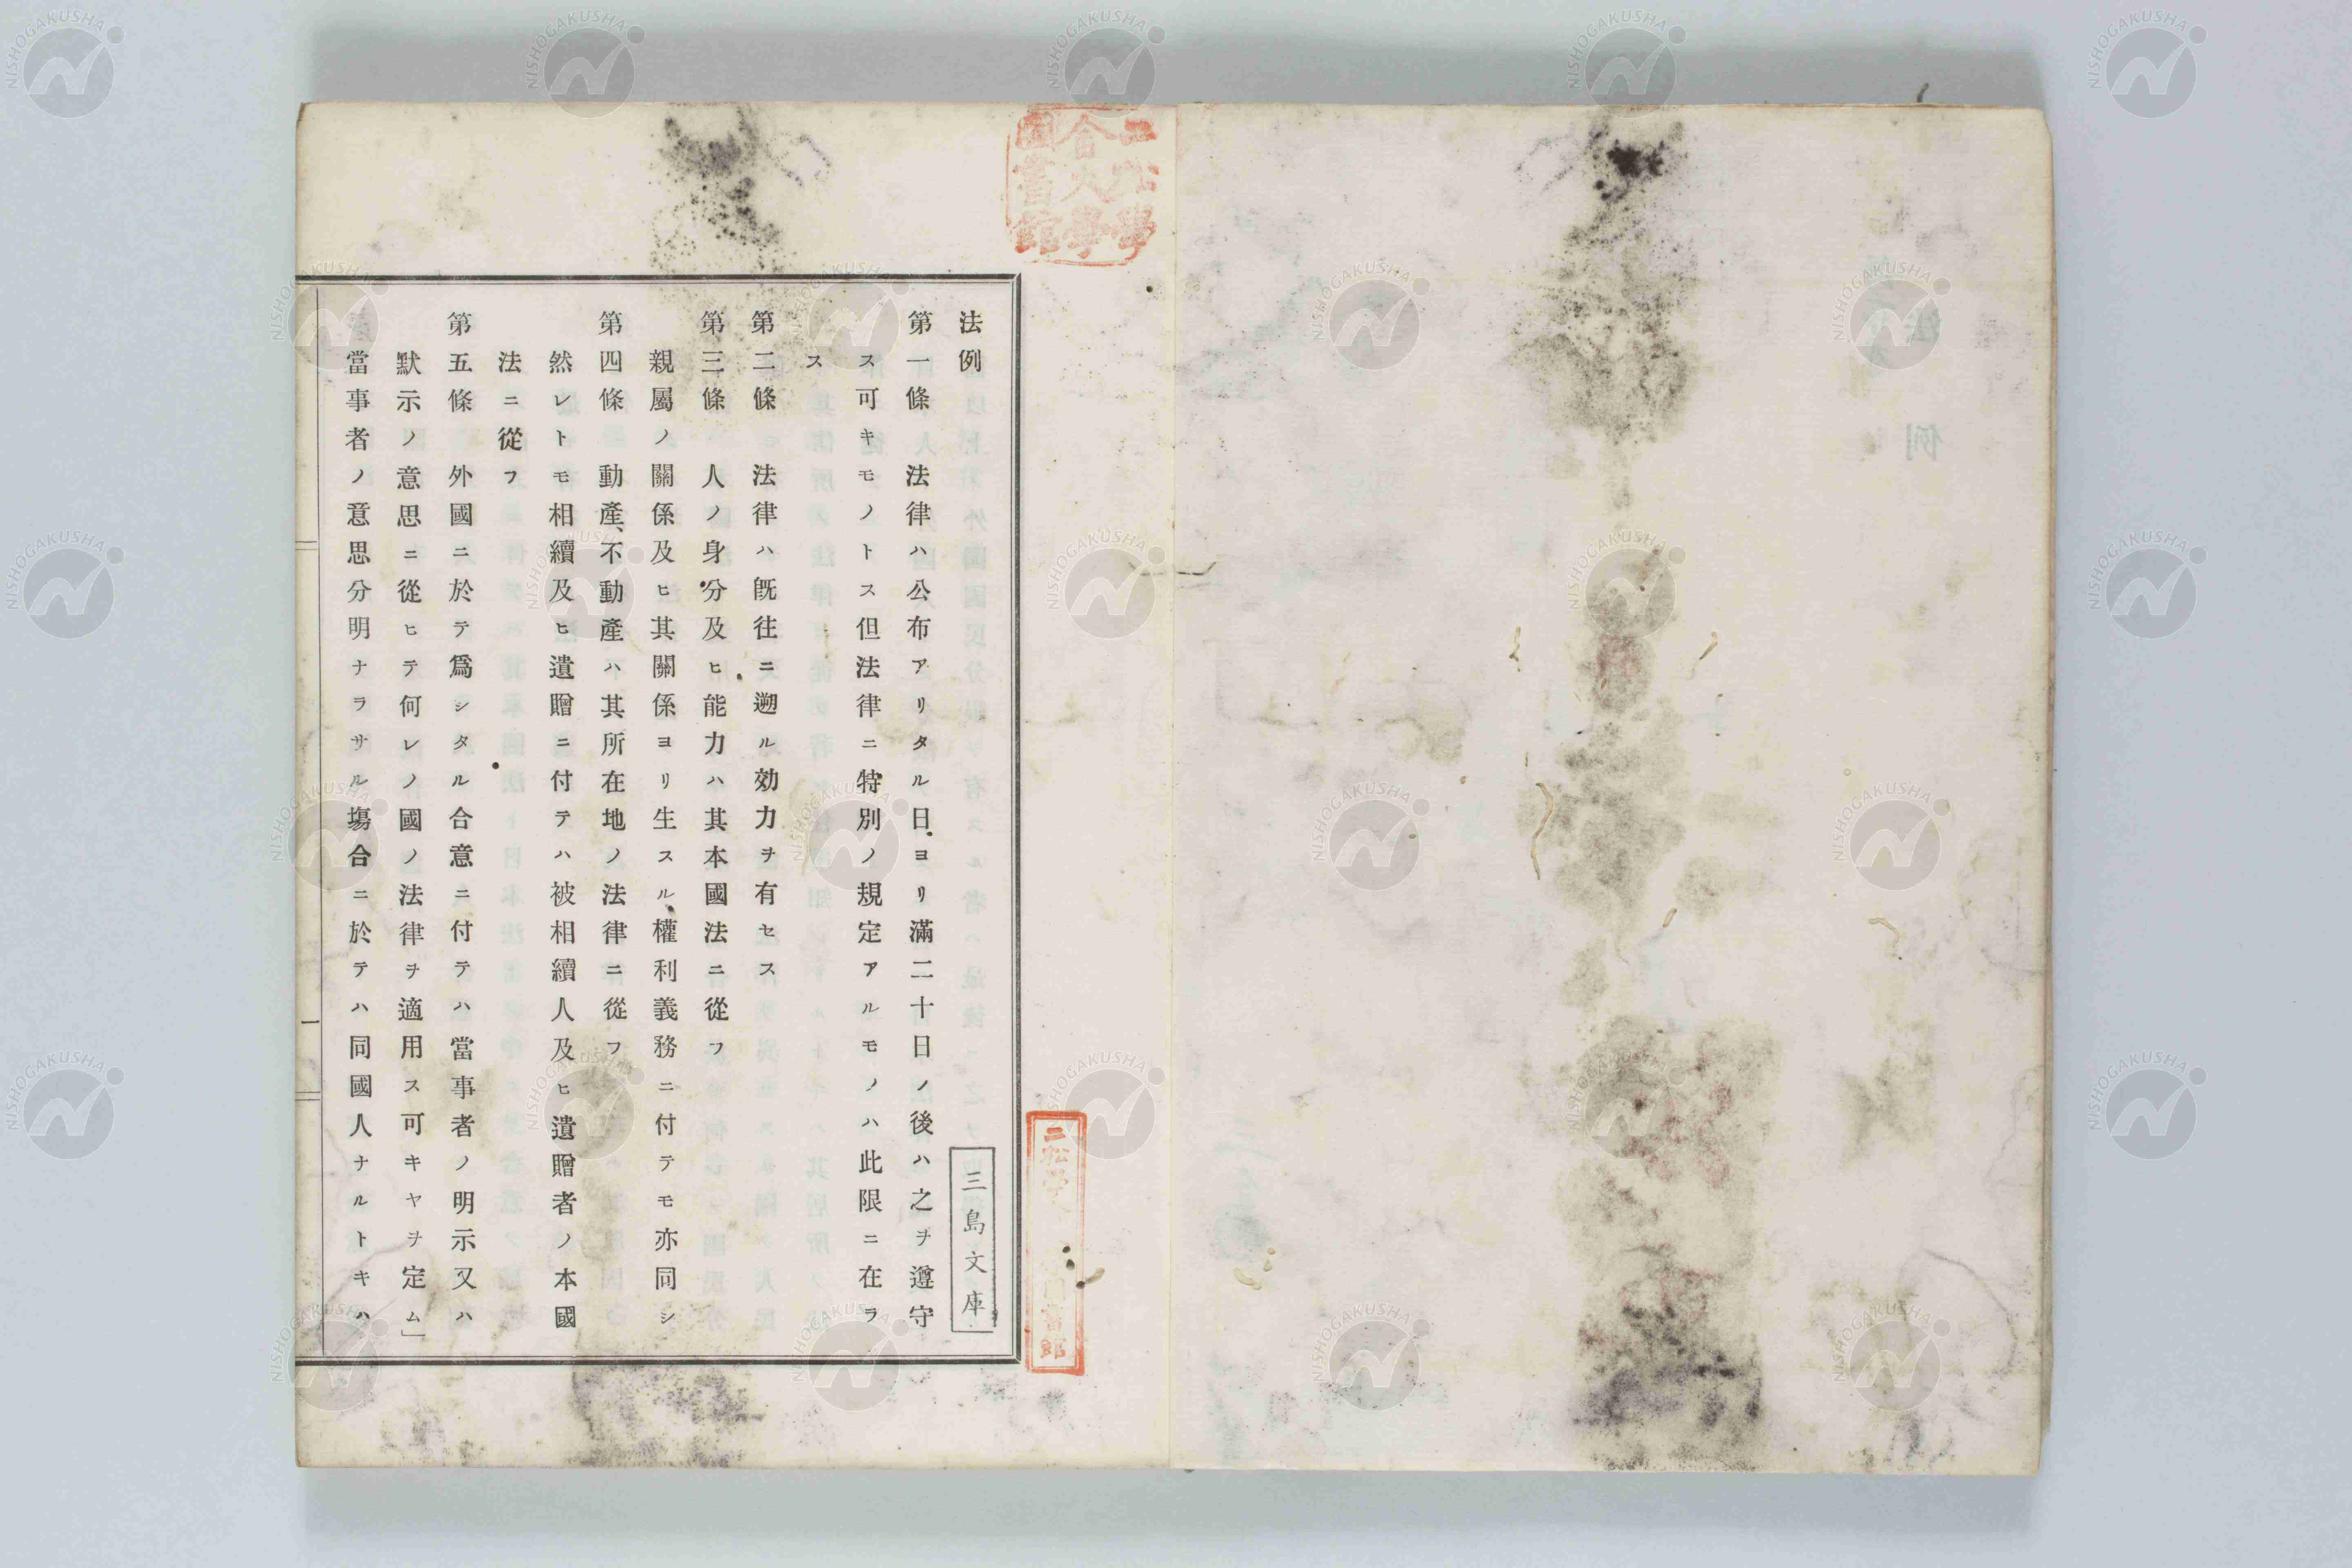 法例
第一條　法律ハ公布アリタル日ヨリ滿二十日ノ後ハ之ヲ遵守
ス可キモノトス但法律ニ特別ノ規定アルモノハ此限ニ在ラ
ス
第二條　法律ハ既往ニ遡ル効力ヲ有セス
第三條　人ノ身分及ヒ能力ハ其本國法ニ從フ
親屬ノ關係及ヒ其關係ヨリ生スル權利義務ニ付テモ亦同シ
第四條　動產、不動產ハ其所在地ノ法律ニ從フ
然レトモ相續及ヒ遺贈ニ付テハ被相續人及ヒ遺贈者ノ本國
法ニ從フ
第五條　外國ニ於テ爲シタル合意ニ付テハ當事者ノ明示又ハ
默示ノ意思ニ從ヒテ何レノ國ノ法律ヲ適用ス可キヤヲ定ム」
當事者ノ意思分明ナラサル塲合ニ於テハ同國人ナルトキハ
一
三島文庫
二松學
舍大學
圖書館
NISHOGAKUSHA